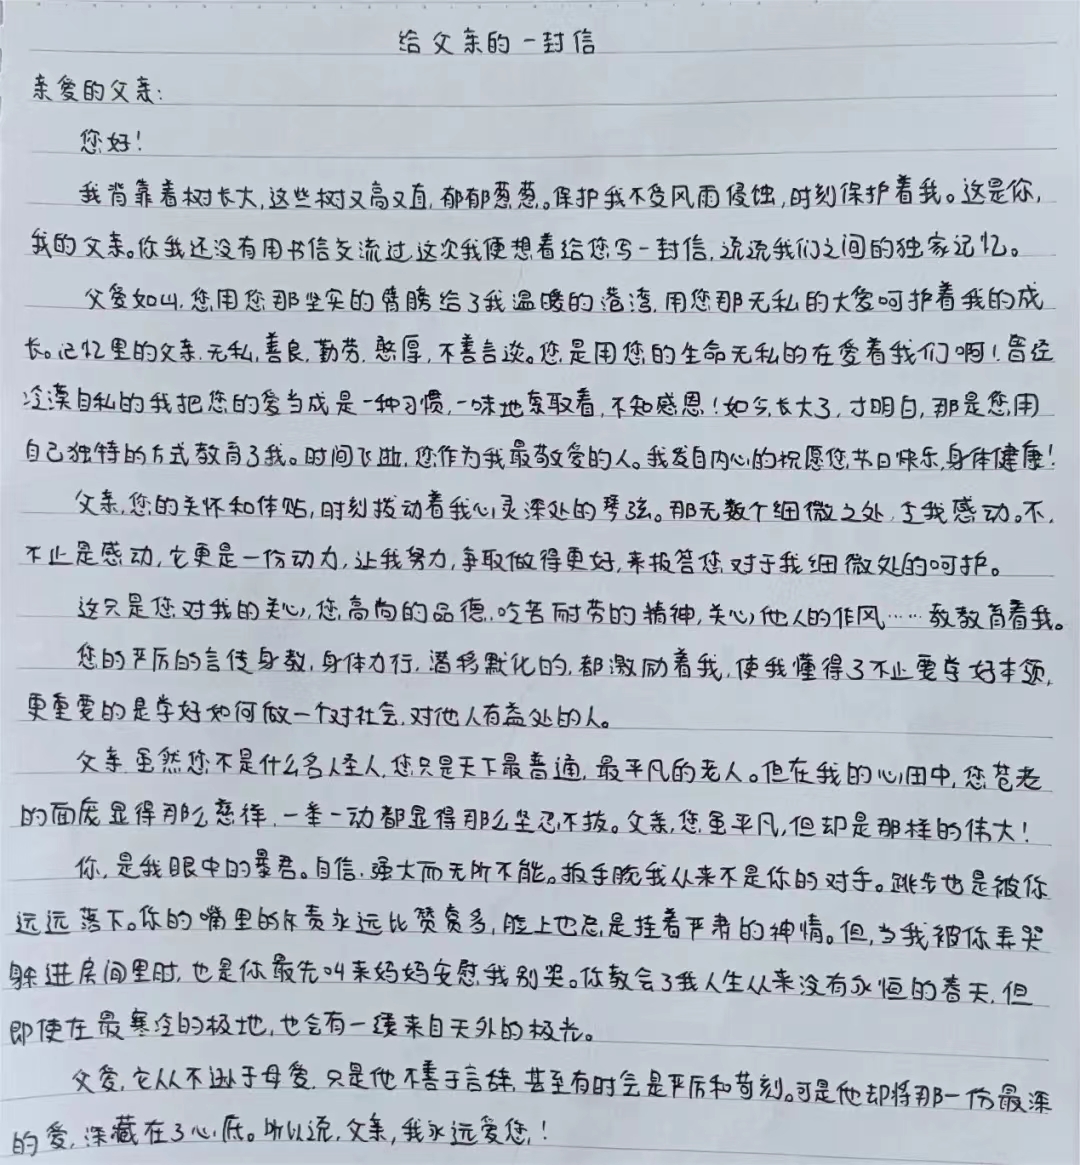 给父亲的一封信
亲爱的父亲:
您好!
我背靠着树长大,这些树又高又直,郁郁葱葱。保护我不受风雨侵蚀,时刻保护着我。这是你,
我的父亲。你我还没有用书信交流过,这次我便想着给您写一封信,说说我们之间的独家记忆。
父爱如山,您用您那坚实的臂膀给了我温暖的港湾,用您那无私的大爱呵护着我的成
长。记忆里的父亲,无私,善良,勤劳,憨厚,不善言谈。您是用您的生命无私的在爱着我们啊!曾经
冷漠自私的我把您的爱当成是一种习惯,一味地索取着,不知感恩!如今,长大了,才明白,那是您用
自己独特的方式教育了我。时间飞逝,您作为我最敬爱的人。我发自内心的祝愿您,节日快乐,身体健康!
父亲,您的关怀和体贴,时刻拨动着我心灵深处的琴弦。那无数个细微之处,令我感动。不,
不止是感动,它更是一份动力,让我努力,争取做得更好,来报答您对于我细微处的呵护。
这只是您对我的关心,您高尚的品德,吃苦耐劳的精神,关心他人的作风……教教育着我。
您的严厉的言传身教,身体力行,潜移默化的,都激励着我,使我懂得了不止要学好本领,
更重要的是学好如何做一个对社会,对他人有益处的人。
父亲,虽然您不是什么名人圣人,您只是天下最普通,最平凡的老人。但在我的心田中,您苍老
的面庞显得那么慈祥,一举一动都显得那么坚忍不拔。父亲,您虽平凡,但却是那样的伟大!
你,是我眼中的暴君。自信,强大而无所不能。扳手腕我从来不是你的对手。跳步也是被你
远远落下。你的嘴里的斥责永远比赞赏多,脸上也总是挂着严肃的神情。但,当我被你弄哭
躲进房间里时,也是你最先叫来妈妈安慰我别哭。你教会了我人生从来没有永恒的春天,但
即使在最寒冷的极地,也会有一缕来自天外的极光。
父爱,它从不逊于母爱,只是他不善于言辞,甚至有时会是严厉和苛刻。可是他却将那一份最深
的爱,深藏在了心底。所以说,父亲,我永远爱您!